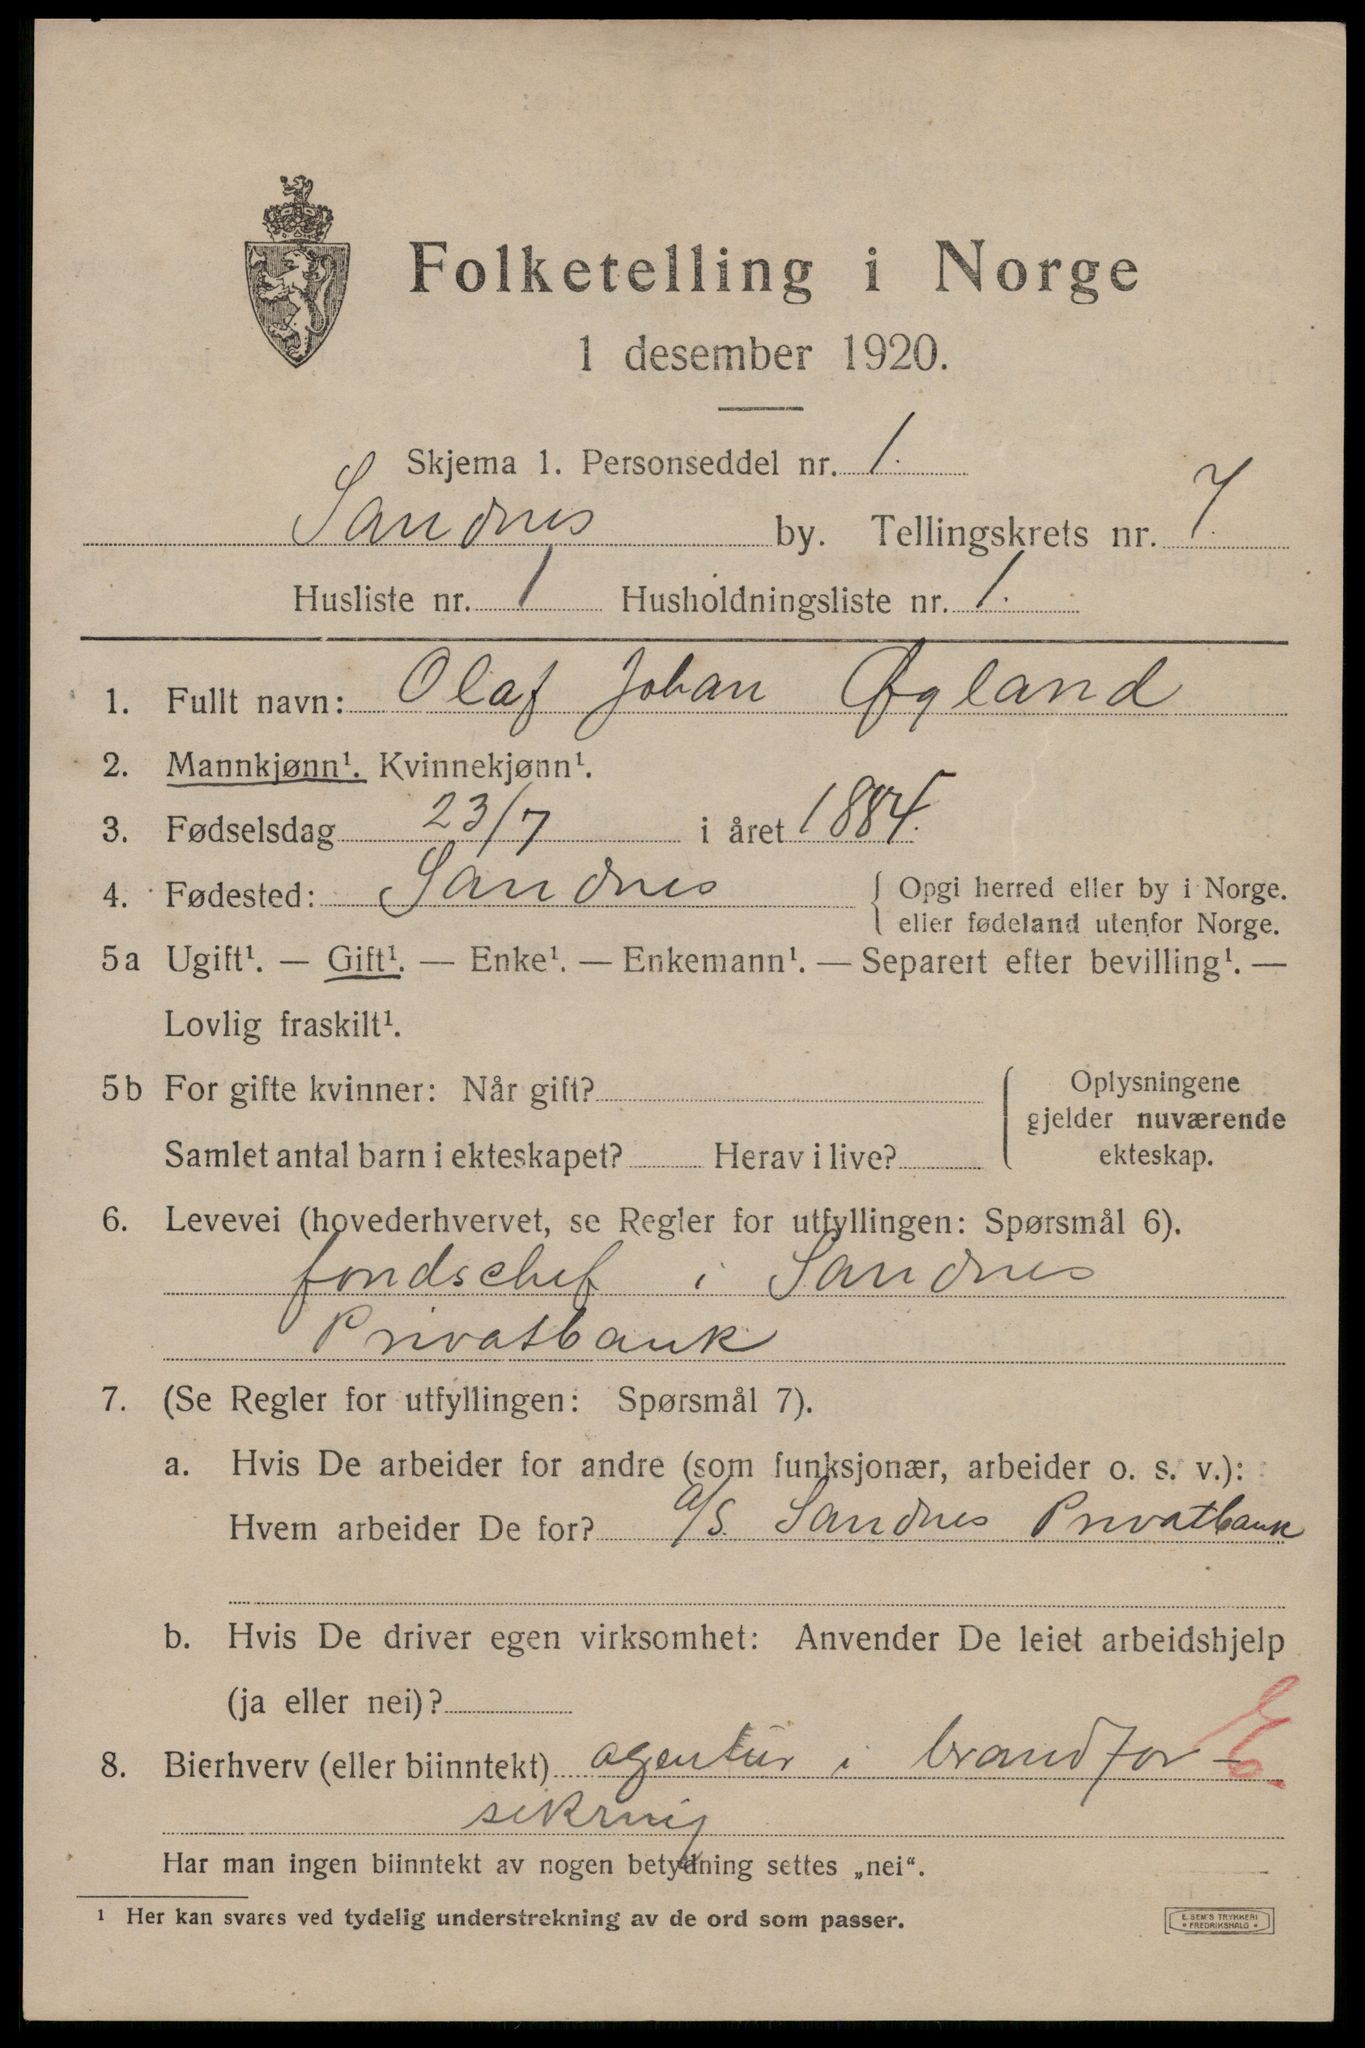 Folketelling i Norge
1 desember 1920.
Skjema 1. Personseddel nr. 1.
Sandnes by. Tellingskrets nr. 7.
Husliste nr. 1 Husholdningsliste nr. 1.
1. Fullt navn: Olaf Johan Øgland
2. Mannkjønn¹. Kvinnekjønn¹.
3. Fødselsdag 23/7 i året 1884.
4. Fødested: Sandnes { Opgi herred eller by i Norge.
eller fødeland utenfor Norge.
5a Ugift¹. — Gift¹. — Enke¹. — Enkemann¹. — Separert efter bevilling¹. —
Lovlig fraskilt¹.
5b For gifte kvinner: Når gift? { Oplysningene
gjelder nuværende
Samlet antal barn i ekteskapet? Herav i live? ekteskap.
6. Levevei (hovederhvervet, se Regler for utfyllingen: Spørsmål 6).
fondschef i Sandnes
Privatbank
7. (Se Regler for utfyllingen: Spørsmål 7).
a. Hvis De arbeider for andre (som funksjonær, arbeider o. s. v.):
Hvem arbeider De for? a/s. Sandnes Privatbank
b. Hvis De driver egen virksomhet: Anvender De leiet arbeidshjelp
(ja eller nei)?
8. Bierhverv (eller biinntekt) agentur i brandfor-
sikring
Har man ingen biinntekt av nogen betydning settes „nei“.
¹ Her kan svares ved tydelig understrekning av de ord som passer.
E. SEM'S TRYKKERI
• FREDRIKSHALD •